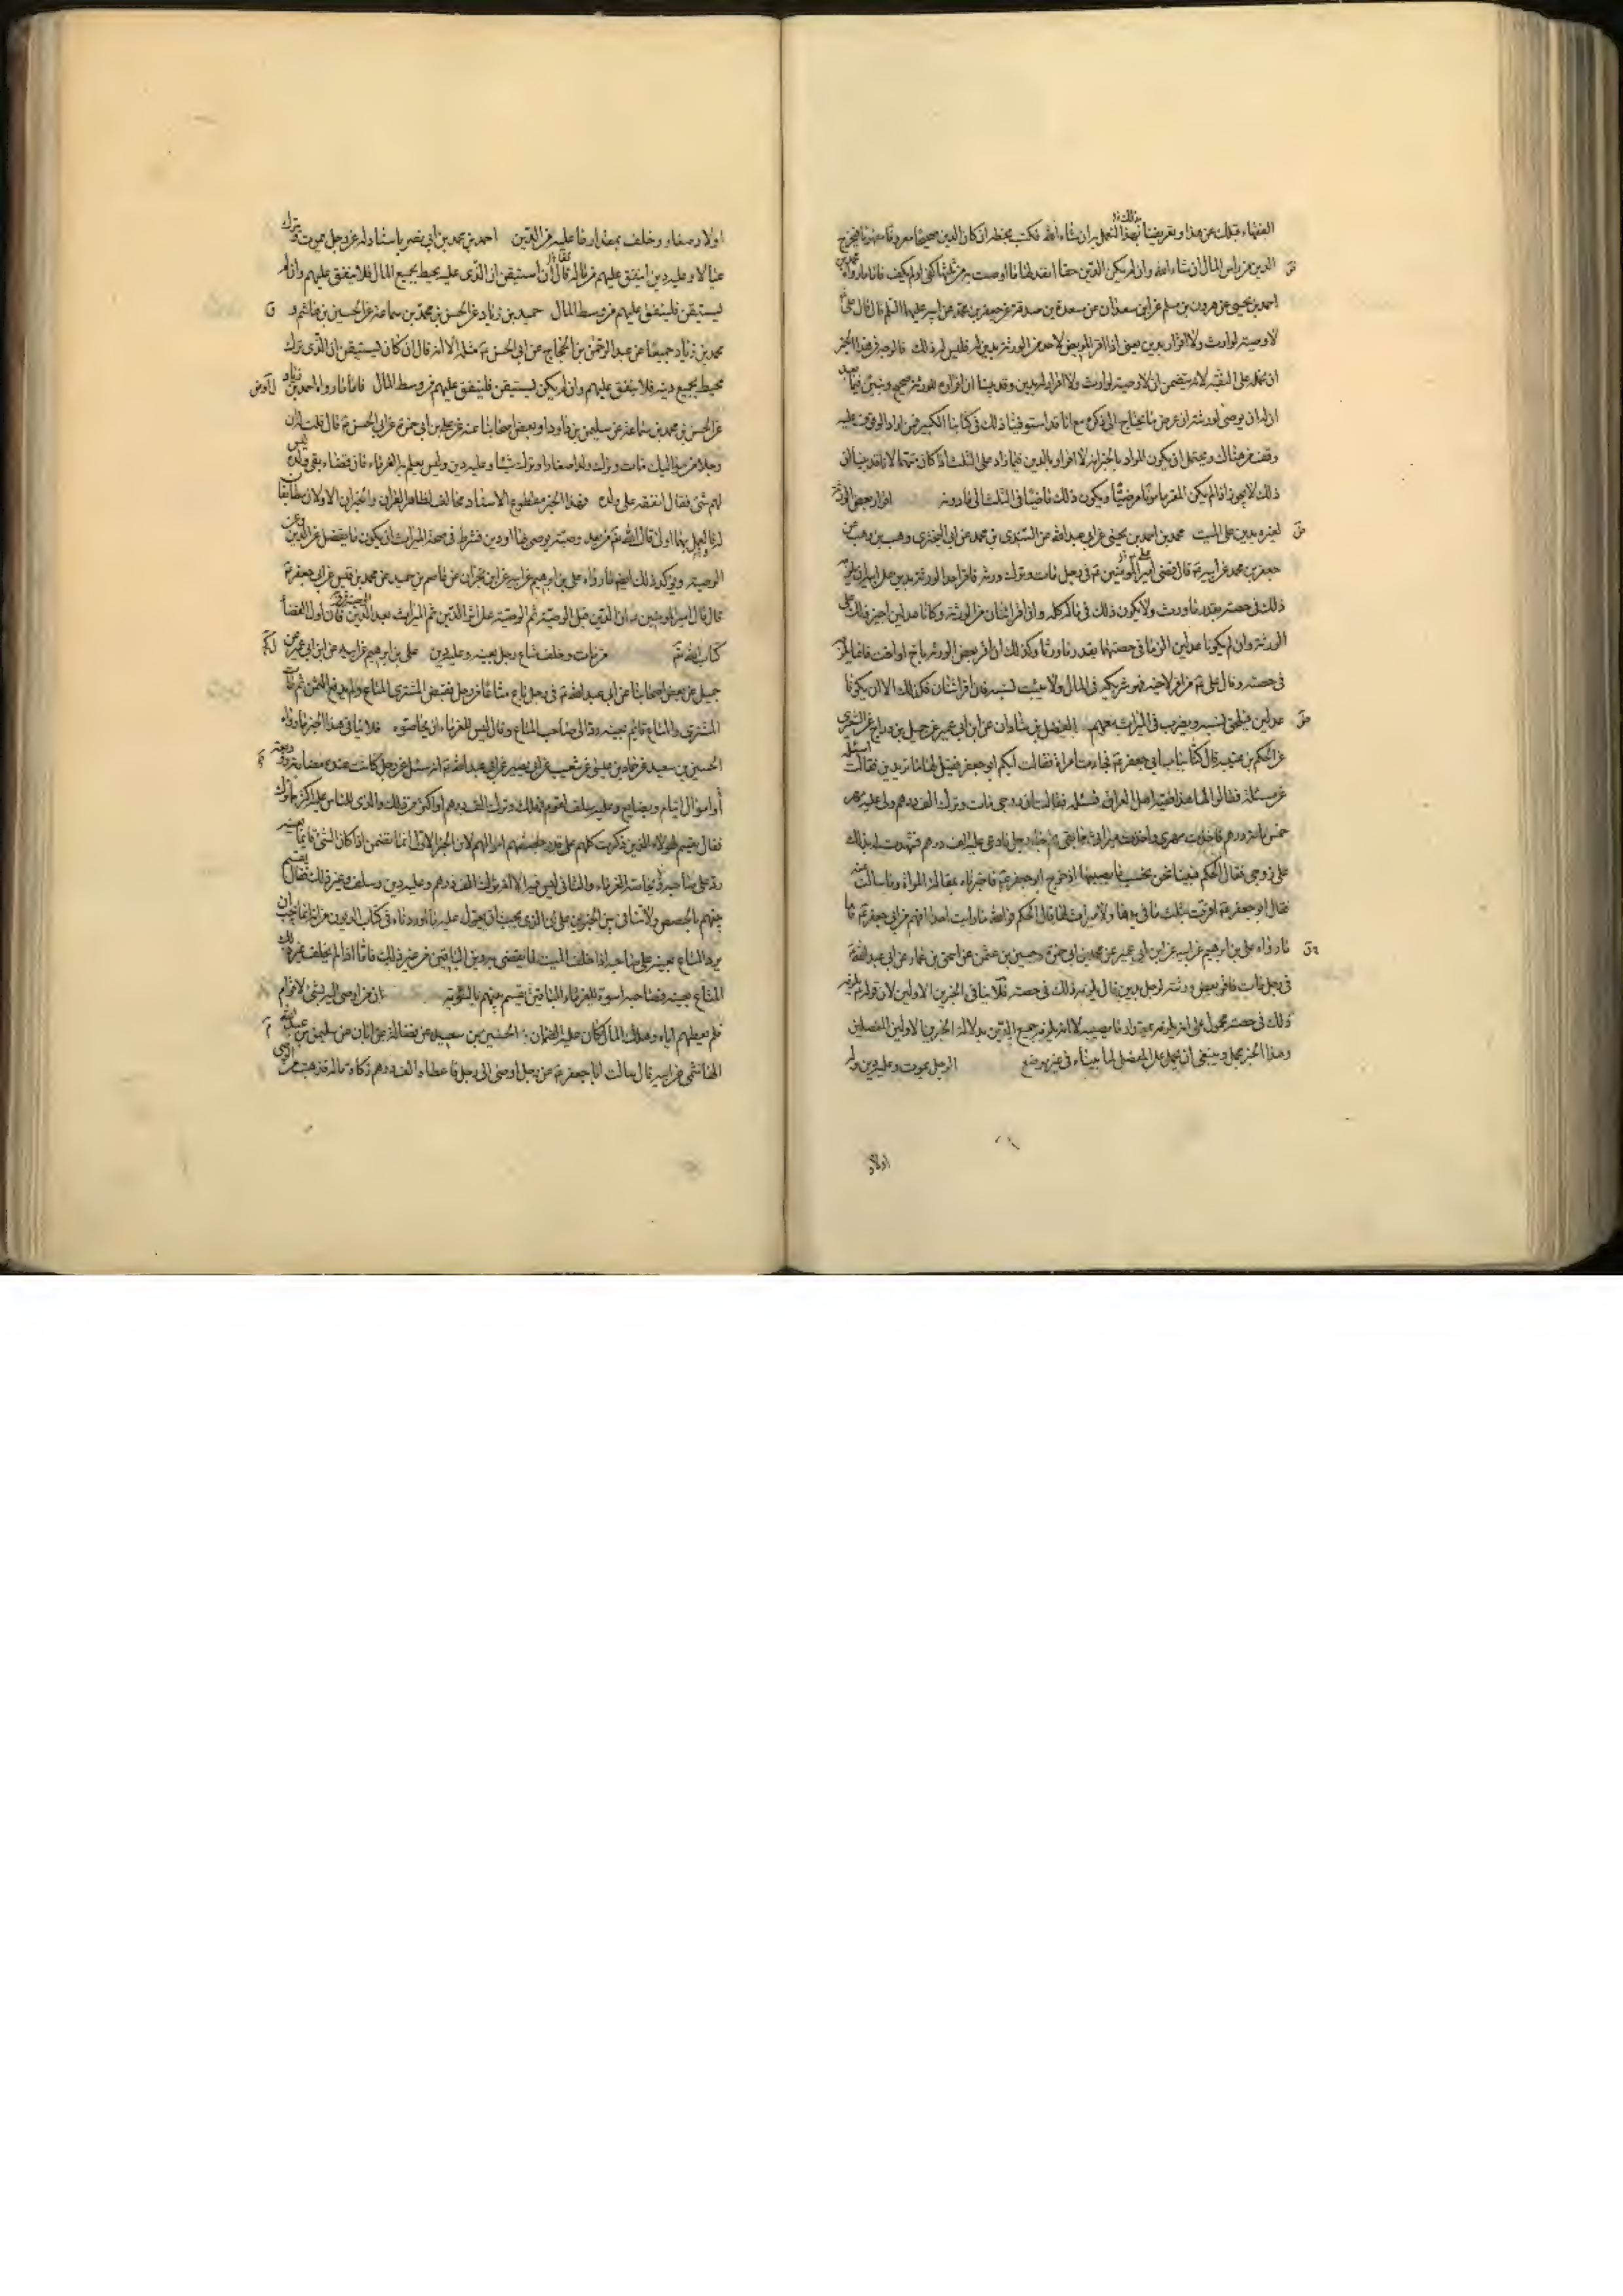 الفقهاء قبلك عن هذا وتعريفنا ذلك لنعمل به ان شاء الله فكتب بخطه ان كان الدين صحيحا معروفا مفهوما فيخرج
الدين من راس المال ان شاء الله وان لم يكن الدين حقا انفذ لها ما اوصت به من ثلثها كفى او لم يكف فاما ما رواه محمد بن
احمد بن يحيى عن هرون بن مسلم عن ابن سعدان عن مسعدة بن صدقة عن جعفر بن محمد عن ابيه عليهما السلم قال قال على
لا وصية لوارث ولا اقرار بدين يعنى اذا اقر المريض لاحد من الورثة بدين له فليس له ذلك فالوجه فى هذا الخبر
ان نحمله على التقية لانه يتضمن ان لا وصية لوارث ولا اقرار له بدين وقد بينا ان اقراره للورثة صحيح ونبين فيما بعد
ان له ان يوصى لورثته
وقف من هناك ويحتمل ان يكون المراد بالخبر انه لا اقرار بالدين فيما زاد على الثلث اذا كان متهما لانا قد بينا ان
ذلك لا يجوز اذا لم يكن المقر مامونا مرضيا ويكون ذلك ماضيا فى الثلث الى ما دونه اقرار بعض الورثة
لغيره بدين على الميت محمد بن احمد بن يحيى عن ابى عبد الله عن السندى بن محمد عن ابى البخترى وهب بن وهب عن
جعفر بن محمد عن ابيه قال قضى امير المؤمنين فى رجل مات وترك ورثة فاقر احد الورثة بدين على ابيه انه يلزمه
ذلك فى حصته بقدر ما ورث ولا يكون ذلك فى ماله كله وان اقر اثنان من الورثة وكانا عدلين اجيز ذلك على
الورثة وان لم يكونا عدلين الزما فى حصتهما بقدر ما ورثا وكذلك ان اقر بعض الورثة باخ او اخت فانما يلزمه
فى حصته وقال على من اقر لاخيه فهو شريكه فى المال ولا يثبت نسبه فان اقر اثنان فكذلك الا ان يكونا
عدلين فيلحق بنسبه ويضرب فى الميراث معهم الفضل بن شاذان عن ابن ابى عمير عن جميل بن دراج عن
عن الحكم بن عتيبة قال كنا بباب ابى جعفر فجاءت امراة فقالت ايكم ابو جعفر فقيل لها ما تريدين فقالت اسئله
عن مسئلة فقالوا لها هذا فقيه اهل العراق فسئليه فقالت ان زوجى مات وترك الف درهم ولى عليه مهر
خمس مائة درهم فاخذت مهرى واخذت ميراثى مما بقى ثم جاء رجل فادعى عليه الف درهم فشهدت له بذلك
على زوجى فقال الحكم فبينا نحن نحسب ما يصيبها اذ خرج ابو جعفر فاخبرناه بمقالة المراة وما سالت عنه
فقال ابو جعفر اقرت بثلث ما فى يدها ولا ميراث لها قال الحكم فوالله ما رايت احدا افهم من ابى جعفر فاما
ما رواه على بن ابرهيم عن ابيه عن ابن ابى عمير عن محمد بن ابى حمزة وحسين بن عثمن عن اسحق بن عمار عن ابى عبد الله
فى رجل مات فاقر بعض ورثته لرجل بدين قال يلزمه ذلك فى حصته فلا ينافى الخبرين الاولين لان قوله يلزمه
ذلك فى حصته محمول على انه يلزمه بمقدار ما يصيبه لا انه يلزمه جميع الدين بدلالة الخبرين الاولين المفصلين
وهذا الخبر مجمل وينبغى ان يحمل على المفصل لما بيناه فى غير موضع الرجل يموت وعليه دين وله
اولاد
اولاد صغار وخلف بمقدار ما عليه من الدين احمد بن محمد بن ابى نصر باسناد له عن رجل يموت ويترك
عيالا وعليه دين اينفق عليهم من ماله قال ان استيقن ان الذى عليه يحيط بجميع المال فلا ينفق عليهم وان لم
يستيقن فلينفق عليهم من وسط المال حميد بن زياد عن الحسن بن محمد بن سماعة عن الحسين بن هاشم و
محمد بن زياد جميعا عن عبد الرحمن بن الحجاج عن ابى الحسن مثله الا انه قال ان كان يستيقن ان الذى ترك
يحيط بجميع دينه فلا ينفق عليهم وان لم يكن يستيقن فلينفق عليهم من وسط المال فاما ما رواه احمد بن زياد
عن الحسن بن محمد بن سماعة عن سليمن بن داود او بعض اصحابنا عنه عن على بن ابى حمزة عن ابى الحسن قال قلت له ان
رجلا من مواليك مات وترك ولدا صغارا وترك شيئا وعليه دين وليس يعلم به الغرماء فان قضاه بقى ولده ليس
لهم شئ فقال انفقه على ولده فهذا الخبر مقطوع الاسناد مخالف لظاهر القران والخبران الاولان مطابقا
له فالعمل بهما اولى قال الله تعالى من بعد وصية يوصى بها او دين فشرط فى صحة الميراث ان يكون ما يفضل عن الدين وعن
الوصية ويؤكد ذلك ايضا ما رواه على بن ابرهيم عن ابيه عن ابن نجران عن عاصم بن حميد عن محمد بن قيس عن ابى جعفر
قال قال امير المؤمنين ان الدين قبل الوصية ثم الوصية على اثر الدين ثم الميراث بعد الوصية فان اول القضاء
كتاب الله من مات وخلف متاع رجل بعينه وعليه دين على بن ابرهيم عن ابيه عن ابن ابى عمير عن
جميل عن بعض اصحابنا عن ابى عبد الله فى رجل باع متاعا من رجل فقبض المشترى المتاع ولم يدفع الثمن ثم مات
المشترى والمتاع قايم بعينه رد الى صاحب المتاع وقال ليس للغرماء ان يحاصوه فلا ينافى هذا الخبر ما رواه
الحسين بن سعيد عن حماد بن عيسى عن شعيب عن ابى بصير عن ابى عبد الله انه سئل عن رجل كانت عنده مضاربة ووديعة
او اموال ايتام وبضايع وعليه سلف لقوم فهلك وترك الف درهم او اكثر من ذلك والذى للناس عليه اكثر مما ترك
فقال يقسم لهؤلاء الذين ذكرت كلهم على قدر حصصهم اموالهم لان الخبر الاول انما يتضمن اذا كان الشئ قايما بعينه
رد على صاحبه دون الغرماء والثانى ليس فيه الا انه ترك الف درهم وعليه دين وسلف وغير ذلك فقال يقسم
بينهم بالحصص ولا تنافى بين الخبرين على ان الذى يجب ان يعول عليه ما اوردناه فى كتاب الديون من انه انما يجب ان
يرد المتاع بعينه على صاحبه اذا خلف الميت ما يقضى به دين الباقين من غير ذلك فاما اذا لم يخلف غير ذلك
المتاع بعينه فصاحبه اسوة للغرماء الباقين يقسم بينهم بالسوية ان من اوصى اليه بشئ لاقوام
فلم يعطهم اياه وهلك المال كان عليه الضمان الحسين بن سعيد عن فضالة عن ابان عن سليمن بن عبد الله
الهاشمى عن ابيه قال سالت ابا جعفر عن رجل اوصى الى رجل فاعطاه الف درهم زكاة ماله فذهبت من الوصى